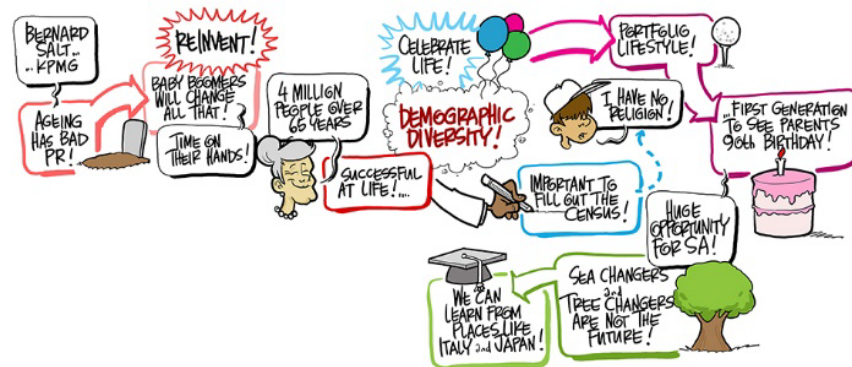 BERNARD
SALT...
...KPMG
AGEING
HAS BAD
PR!
REINVENT!
BABY BOOMERS
WILL CHANGE
ALL THAT!
TIME ON
THEIR HANDS!
4 MILLION
PEOPLE OVER
65 YEARS
SUCCESSFUL
AT LIFE!....
CELEBRATE
LIFE!
DEMOGRAPHIC
DIVERSITY!
IMPORTANT TO
FILL OUT THE
CENSUS!
I HAVE NO
RELIGION!
PORTFOLIO
LIFESTYLE!
...FIRST GENERATION
TO SEE PARENTS
90th BIRTHDAY!
HUGE
OPPORTUNITY
FOR SA!
SEA CHANGERS
and
TREE CHANGERS
ARE NOT THE
FUTURE!
WE CAN
LEARN FROM
PLACES LIKE
ITALY and JAPAN!